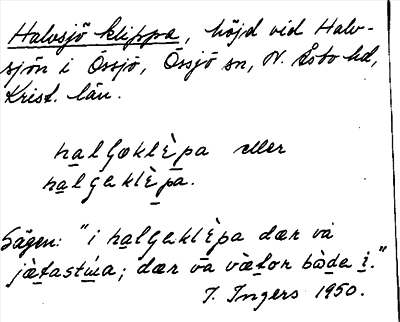 Halvsjö klippa, höjd vid Halv-
sjön i Össjö, Össjö sn, N. Åsbo hd,
Krist. län.
halʃøklèpa eller
halʃaklèpa.
Sägen: "i halʃaklèpa dær va
jætastúa; dær va vætor bàda i."
I. Ingers 1950.